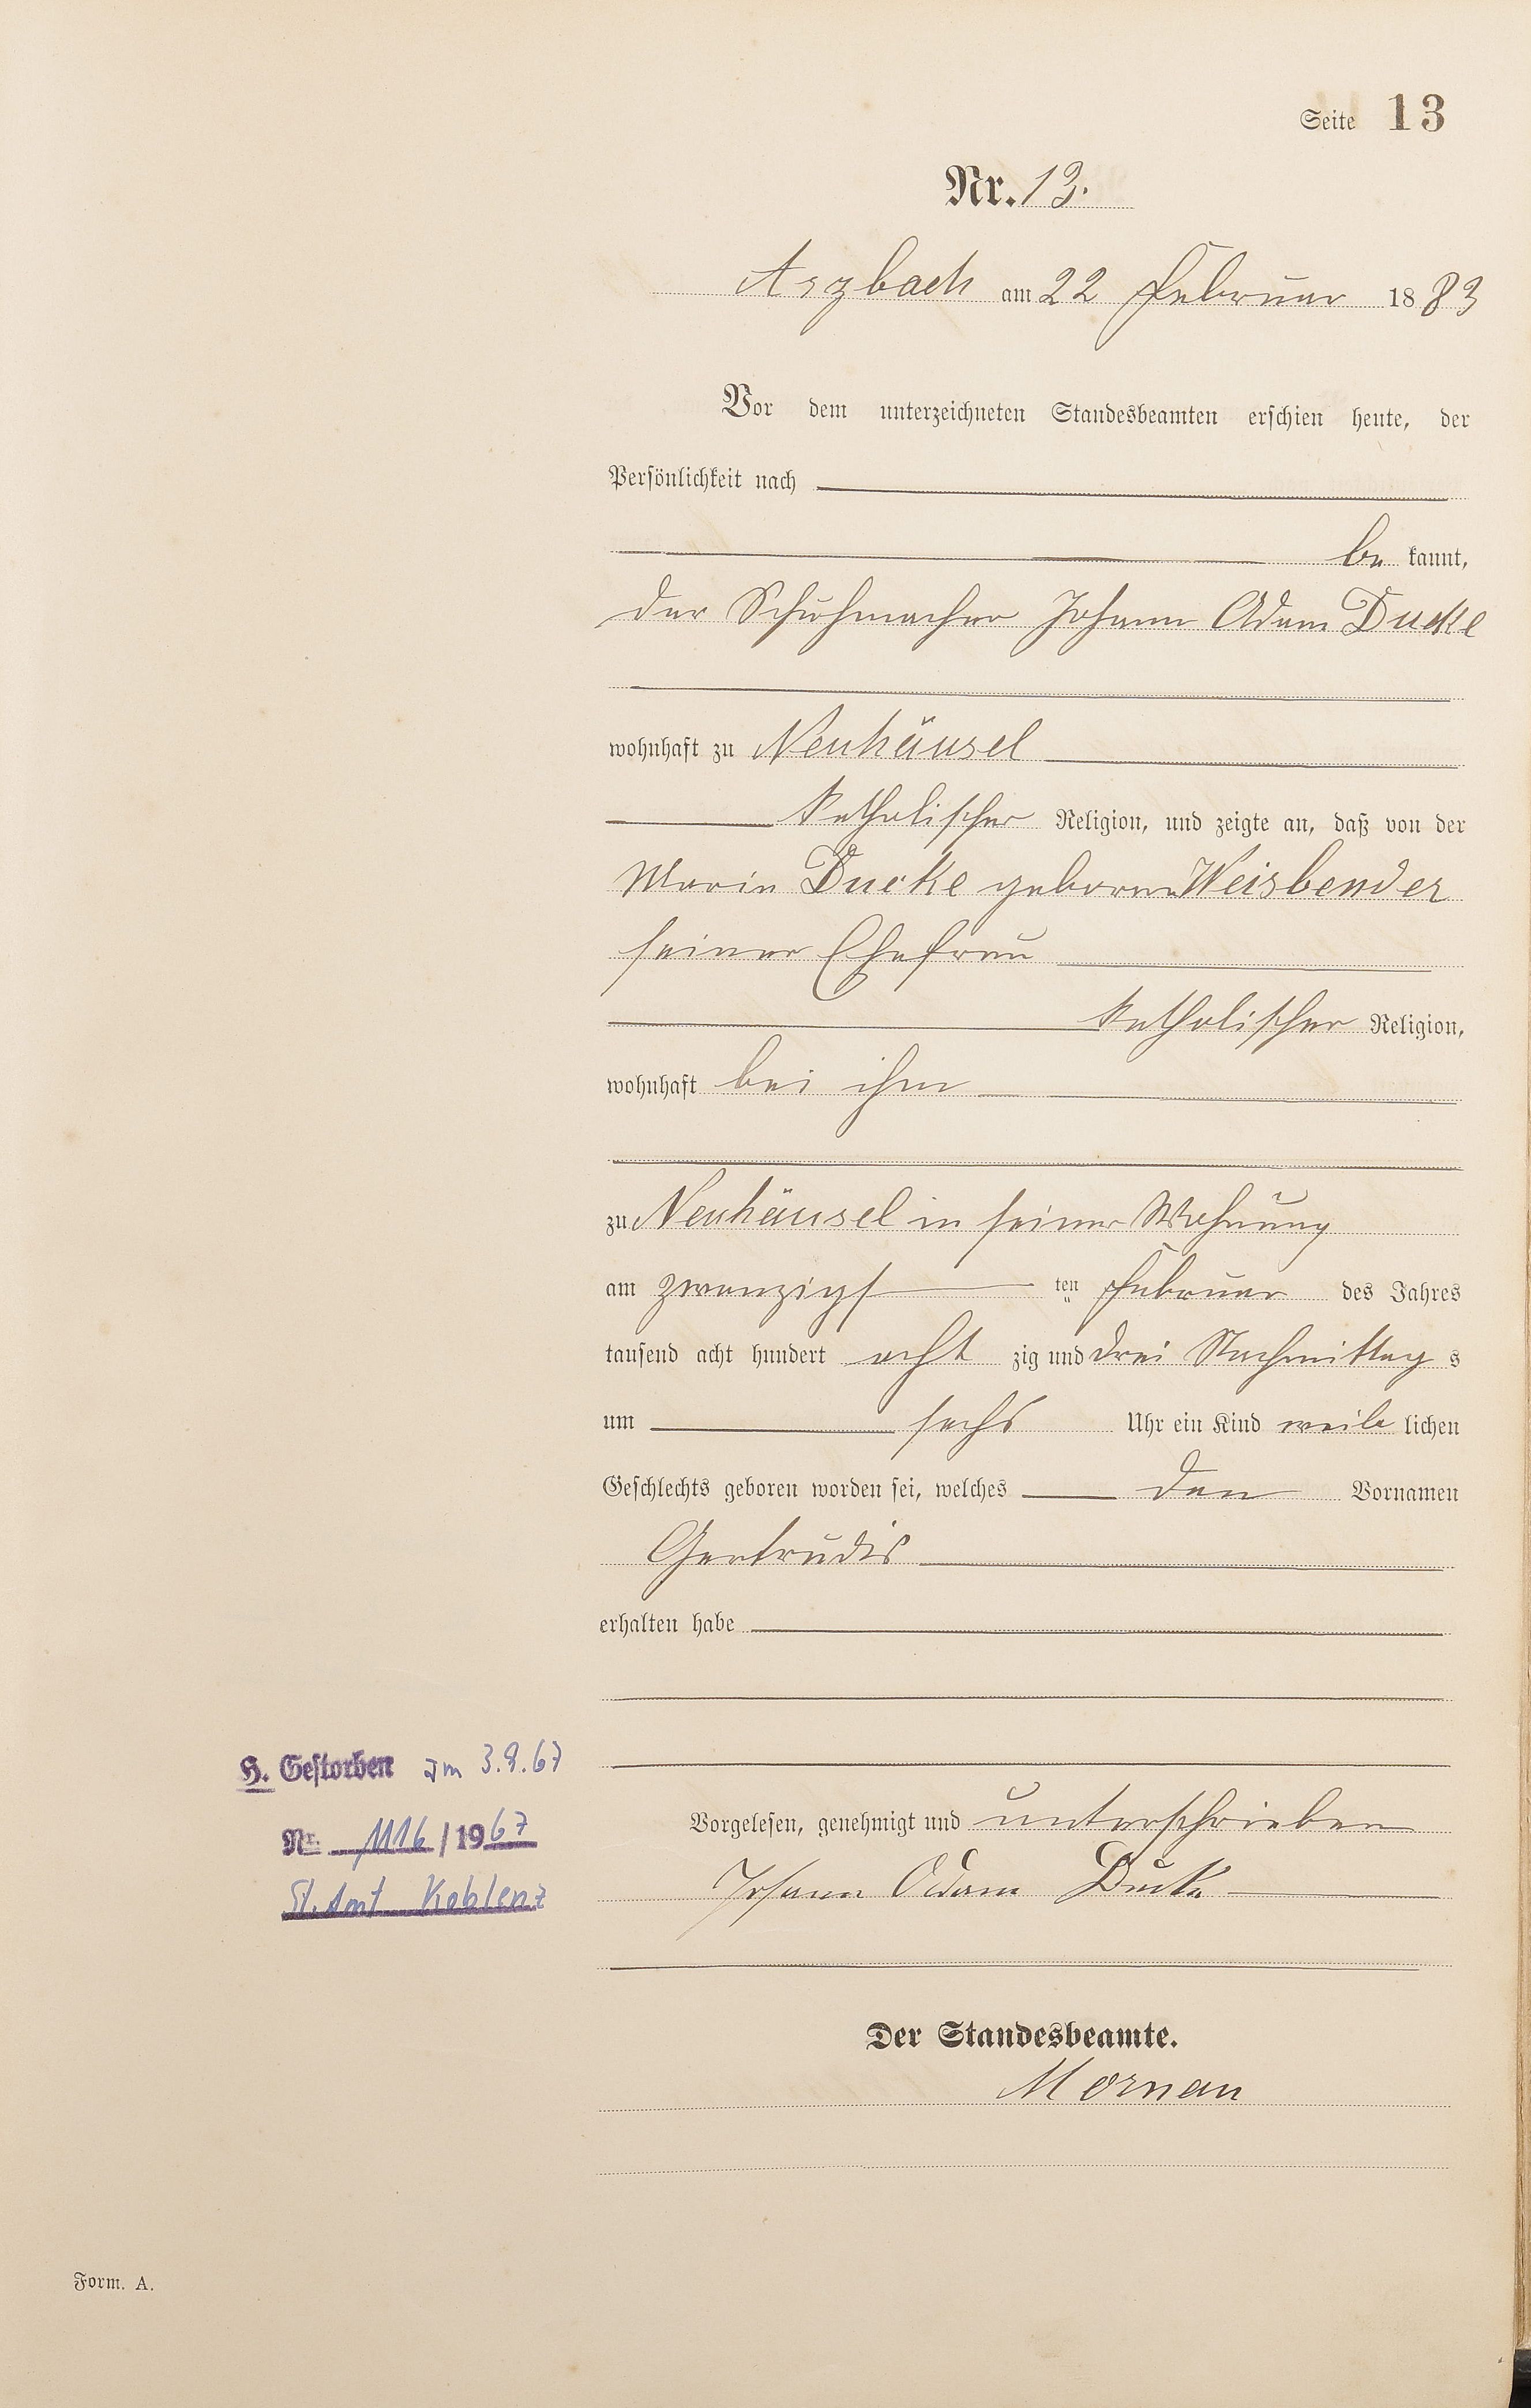 Seite 13
Nr. 13.
Arzbach am 22 Februar 1883
Vor dem unterzeichneten Standesbeamten erschien heute, der
Persönlichkeit nach
be kannt,
der Schuhmacher Johann Adam Ducke
wohnhaft zu Neuhäusel
katholischer Religion, und zeigte an, daß von der
Maria Ducke geborene Weisbender
seiner Ehefrau
katholischer Religion,
wohnhaft bei ihm
zu Neuhäusel in seiner Wohnung
am zwanzigs ten Februar des Jahres
tausend acht hundert acht zig und drei Nachmittag s
um sechs Uhr ein Kind weib lichen
Geschlechts geboren worden sei, welches den Vornamen
Gertrudis
erhalten habe
H. Gestorben am 3.9.67
Nr. 1116/1967
St. Amt Koblenz
Vorgelesen, genehmigt und unterschrieben
Johann Adam Ducke
Der Standesbeamte.
Mornau
Form. A.